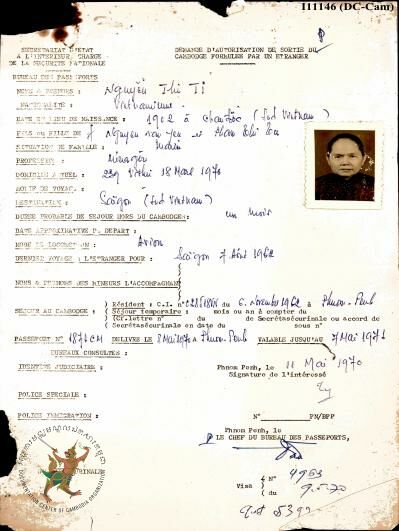 I11146 (DC-Cam)
SECRETARIAT D'ETAT
A L'INTERIEUR, CHARGE
DE LA SECURITE NATIONALE
DEMANDE D'AUTORISATION DE SORTIE DU
CAMBODGE FORMULEE PAR UN ETRANGER
BUREAU DES PASSEPORTS
NOMS & PRENOMS : Nguyễn Thi Ti
NATIONALITE : Vietnamienne
DATE ET LIEU DE NAISSANCE : 1902 à Chaudoc (Sud Vietnam)
FILS ou FILLE DE : Nguyen van
SITUATION DE FAMILLE :
PROFESSION : Ménagère
DOMICILE ACTUEL : 229 Vithei 18 Mars 1970
MOTIF DE VOYAGE :
DESTINATION : Saigon (Sud Vietnam)
DUREE PROBABLE DE SEJOUR HORS DU CAMBODGE : un mois
DATE APPROXIMATIVE DE DEPART :
MODE DE LOCOMOTION : Avion
DERNIER VOYAGE A L'ETRANGER POUR : Saigon 7 Août 1962
NOMS & PRENOMS DES MINEURS L'ACCOMPAGNANT
SEJOUR AU CAMBODGE : Résident : C.I. n° du 6 Novembre 1962 à Phnom-Penh
Séjour temporaire : mois ou an à compter du
(Cf.lettre n° du de Secrétasécurinale ou accord de
Secrétasécurinale en date du sous n°
PASSEPORT N° 1871 CM DELIVRE LE 8 Mai 1970 à Phnom-Penh VALABLE JUSQU'AU 7 Mai 1971
BUREAUX CONSULTES :
Phnom Penh, le 11 Mai 1970
IDENTITE JUDICIAIRE :
Signature de l'intéressé
POLICE SPECIALE :
N° PN/BPP
POLICE IMMIGRATION :
Phnom Penh, le
LE CHEF DU BUREAU DES PASSEPORTS,
N° 4953
Visa
du 9.5.70
5399
DOCUMENTATION CENTER OF CAMBODIA ORGANIZATION